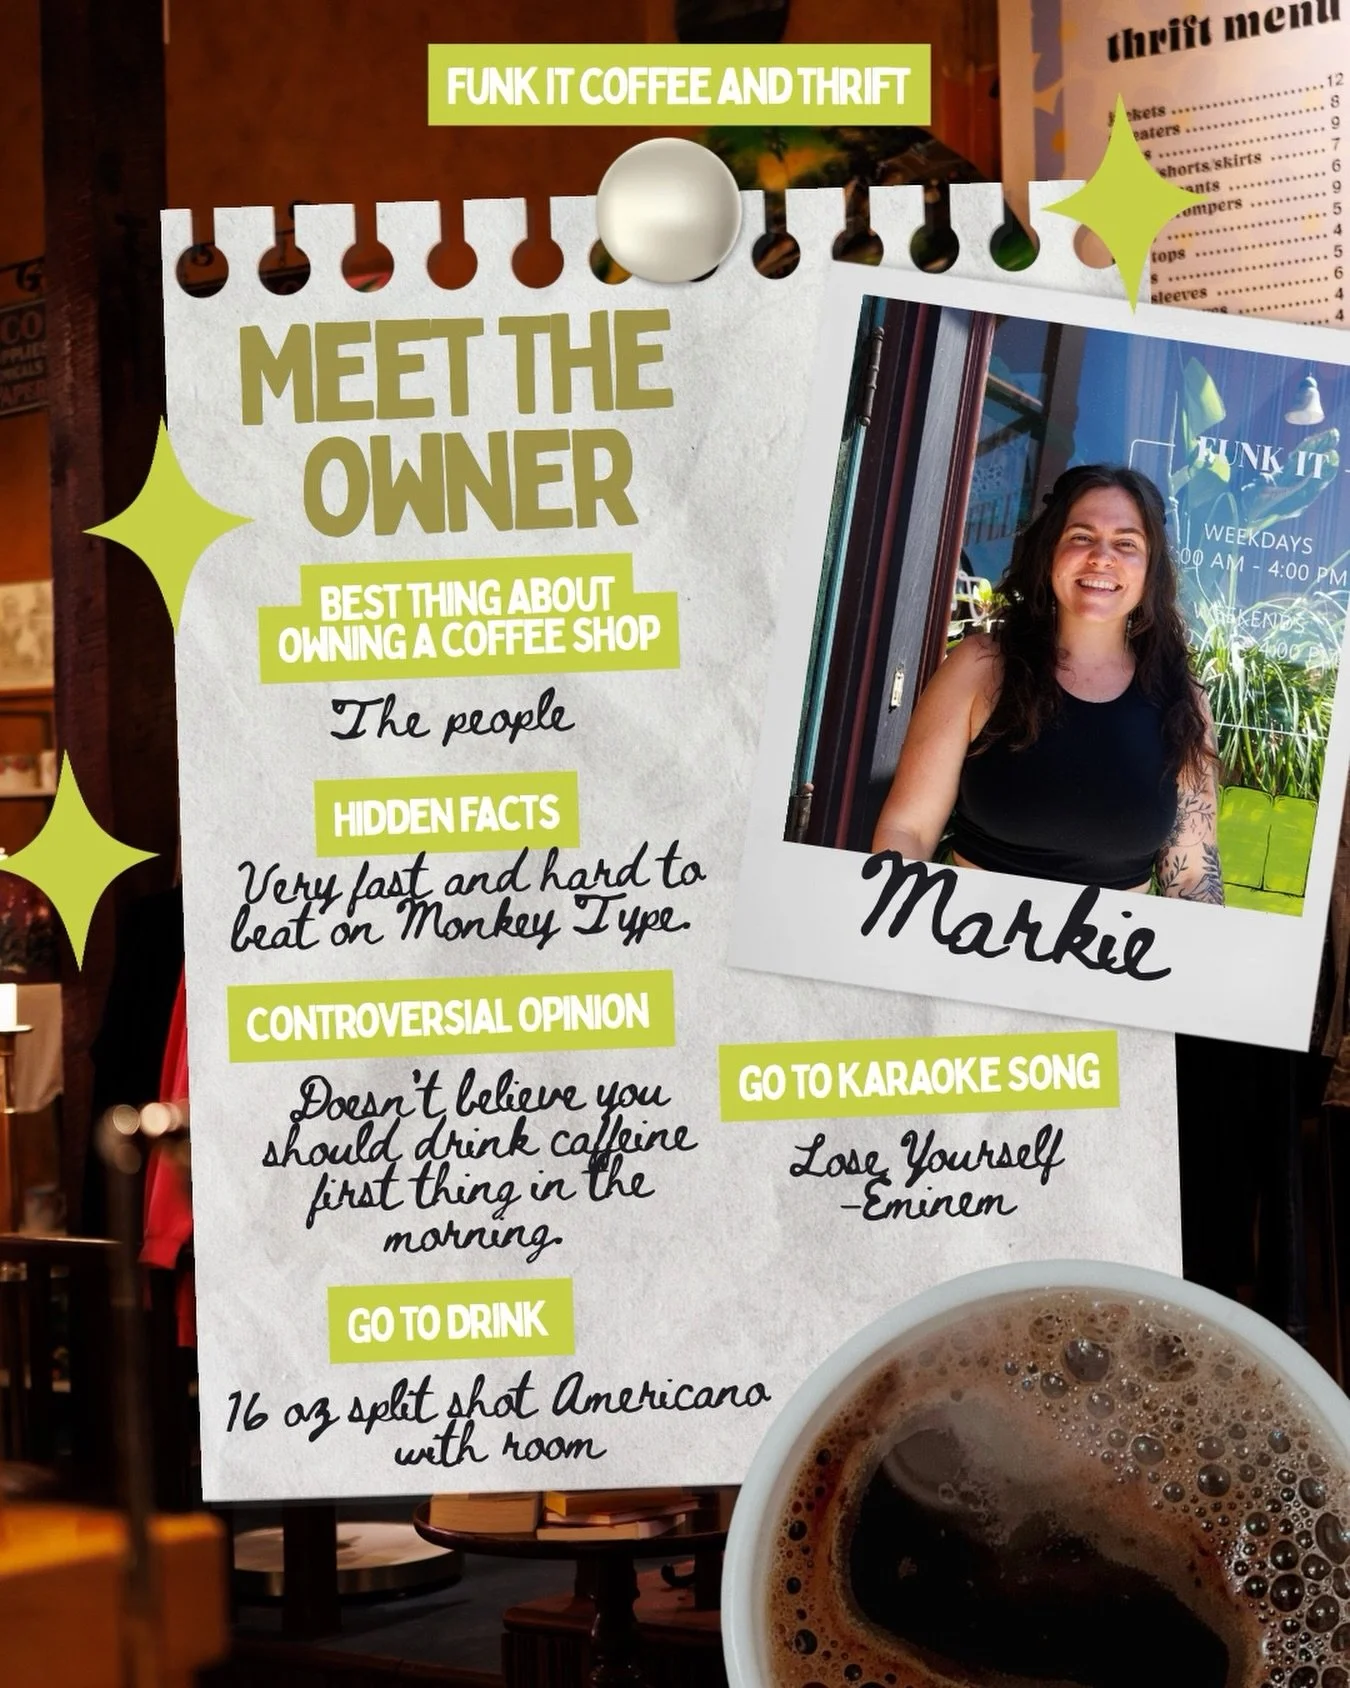 FUNK IT COFFEE AND THRIFT
thrift menu
12
8
9
shorts/skirts 7
6
9
5
tops 4
5
sleeves 6
4
4
MEET THE
OWNER
BEST THING ABOUT
OWNING A COFFEE SHOP
The people
HIDDEN FACTS
Very fast and hard to
beat on Monkey Type.
CONTROVERSIAL OPINION
Doesn't believe you
should drink caffeine
first thing in the
morning.
GO TO DRINK
16 oz split shot Americano
with room
FUNK IT
WEEKDAYS
:00 AM - 4:00 PM
WEEKENDS
4:00 PM
Markie
GO TO KARAOKE SONG
Lose Yourself
-Eminem